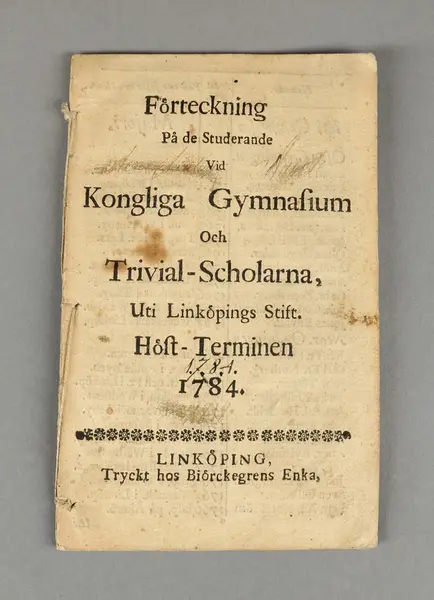 Förteckning
På de Studerande
Vid
Kongliga Gymnaſium
Och
Trivial-Scholarna,
Uti Linköpings Stift.
Höſt-Terminen
1784.
1784.
LINKÖPING,
Tryckt hos Biörckegrens Enka,